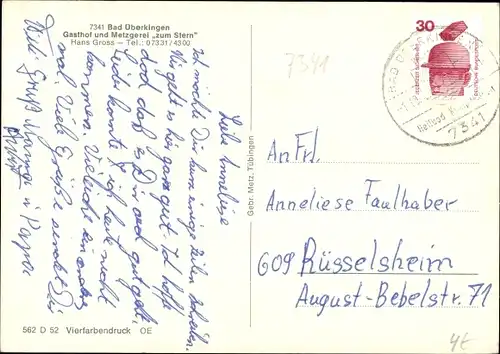 7341 Bad Überkingen
Gasthof und Metzgerei „zum Stern"
Hans Gross — Tel.: 07331/4300
Liebe Anneliese
Ich möchte Dir kurz einige Zeilen schreiben.
Mir geht es hier ganz gut. Ich hoffe
doch daß es Dir auch gut geht.
Leider konnte ich heute nicht
kommen. Vieleicht ein andres
mal. Viele Grüße sendet Dir
Viele Grüße Mama u Papa
562 D 52 Vierfarbendruck OE
Gebr. Metz, Tübingen
7341
30
DEUTSCHE BUNDESPOST
BAD
7341
An Frl.
Anneliese Faulhaber
609 Rüsselsheim
August-Bebelstr. 71
4€